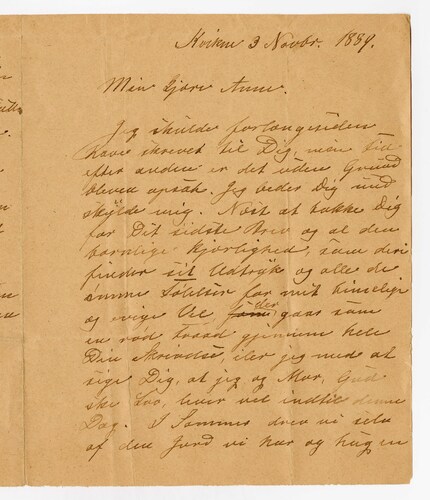 Kvikne 3 Novbr. 1889.
Min kjære Anne.
Jeg skulde forlængesiden
have skrevet til Dig, men Tid
efter anden er det uden Grund
bleven opsat. Jeg beder Dig und
skylde mig. Næst at takke Dig
for Dit sidste Brev og al den
barnlige Kjærlighed, som deri
finder sit Udtryk og alle de
ømme Følelser for mit timelige
og evige Vel, som der gaar som
en rød Traad gjennem hele
Din Skrivelse, iler jeg med at
sige Dig, at jeg og Mor, Gud
ske Lov, lever vel indtil denne
Dag. I Sommer drev vi selv
af den Jord vi har og